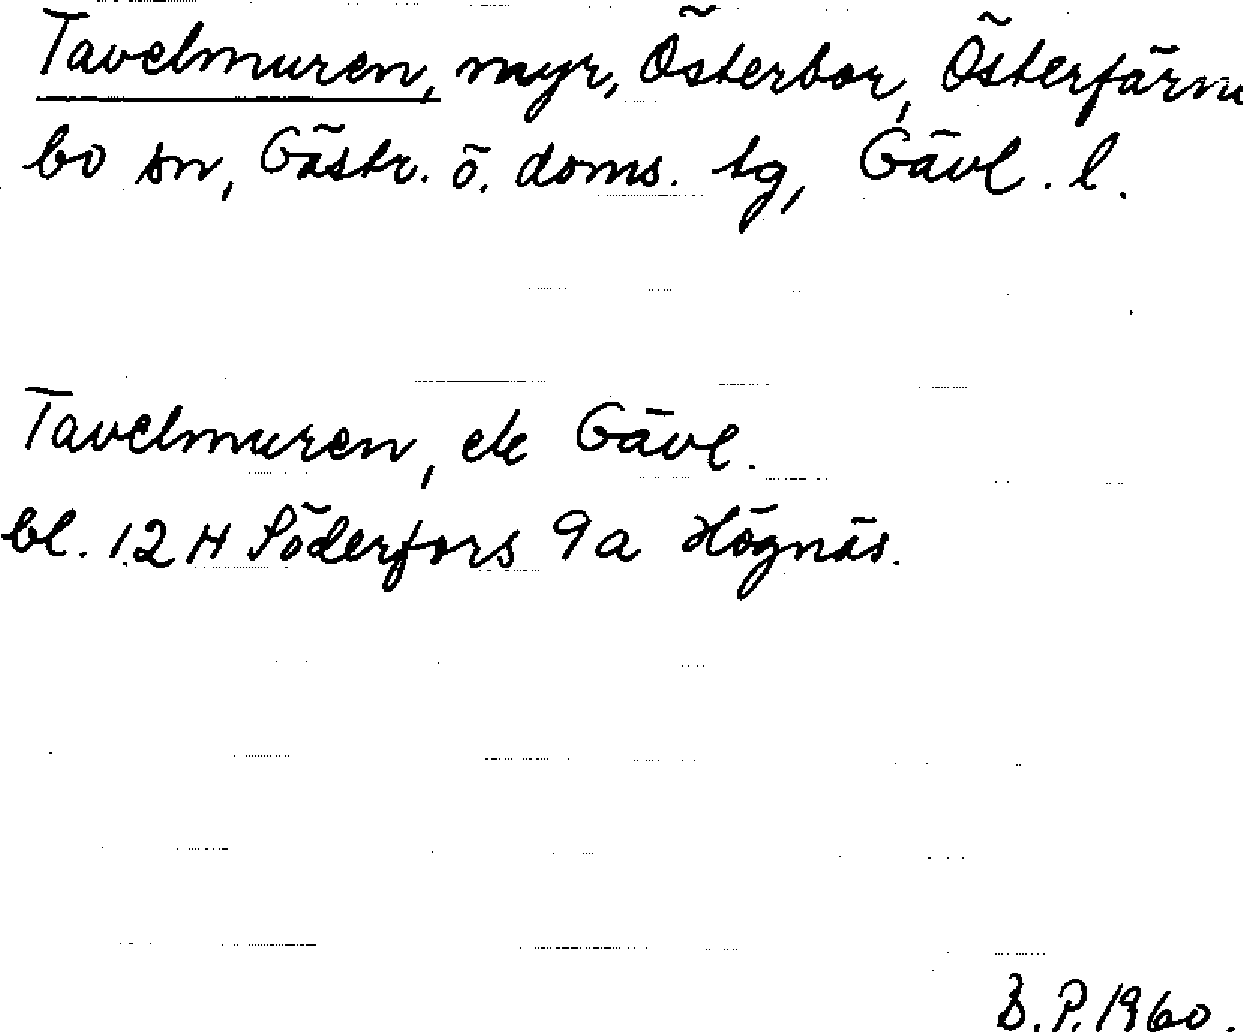 Tavelmuren, myr, Österbor, Österfärne
bo sn, Gästr. ö. doms. tg, Gävl. l.
Tavelmuren, ek Gävl.
bl. 12 H Söderfors 9 a Högnäs.
B. P. 1960.